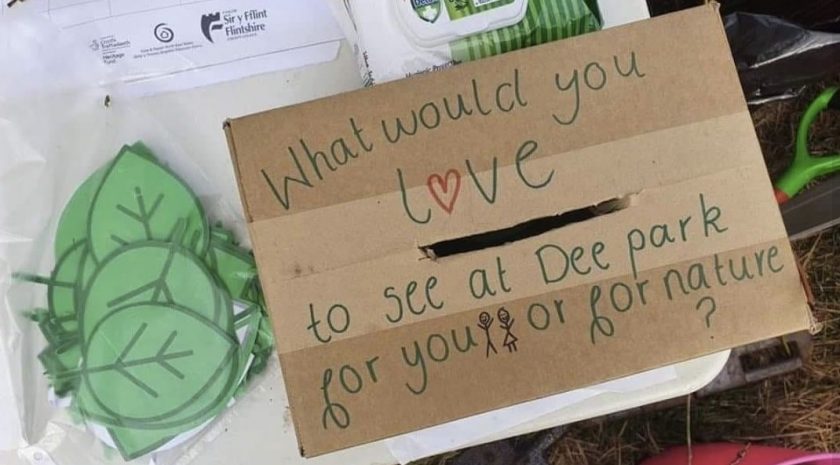 Sir y Fflint
Flintshire
Dettol
What would you
love
to see at Dee park
for you or for nature
?